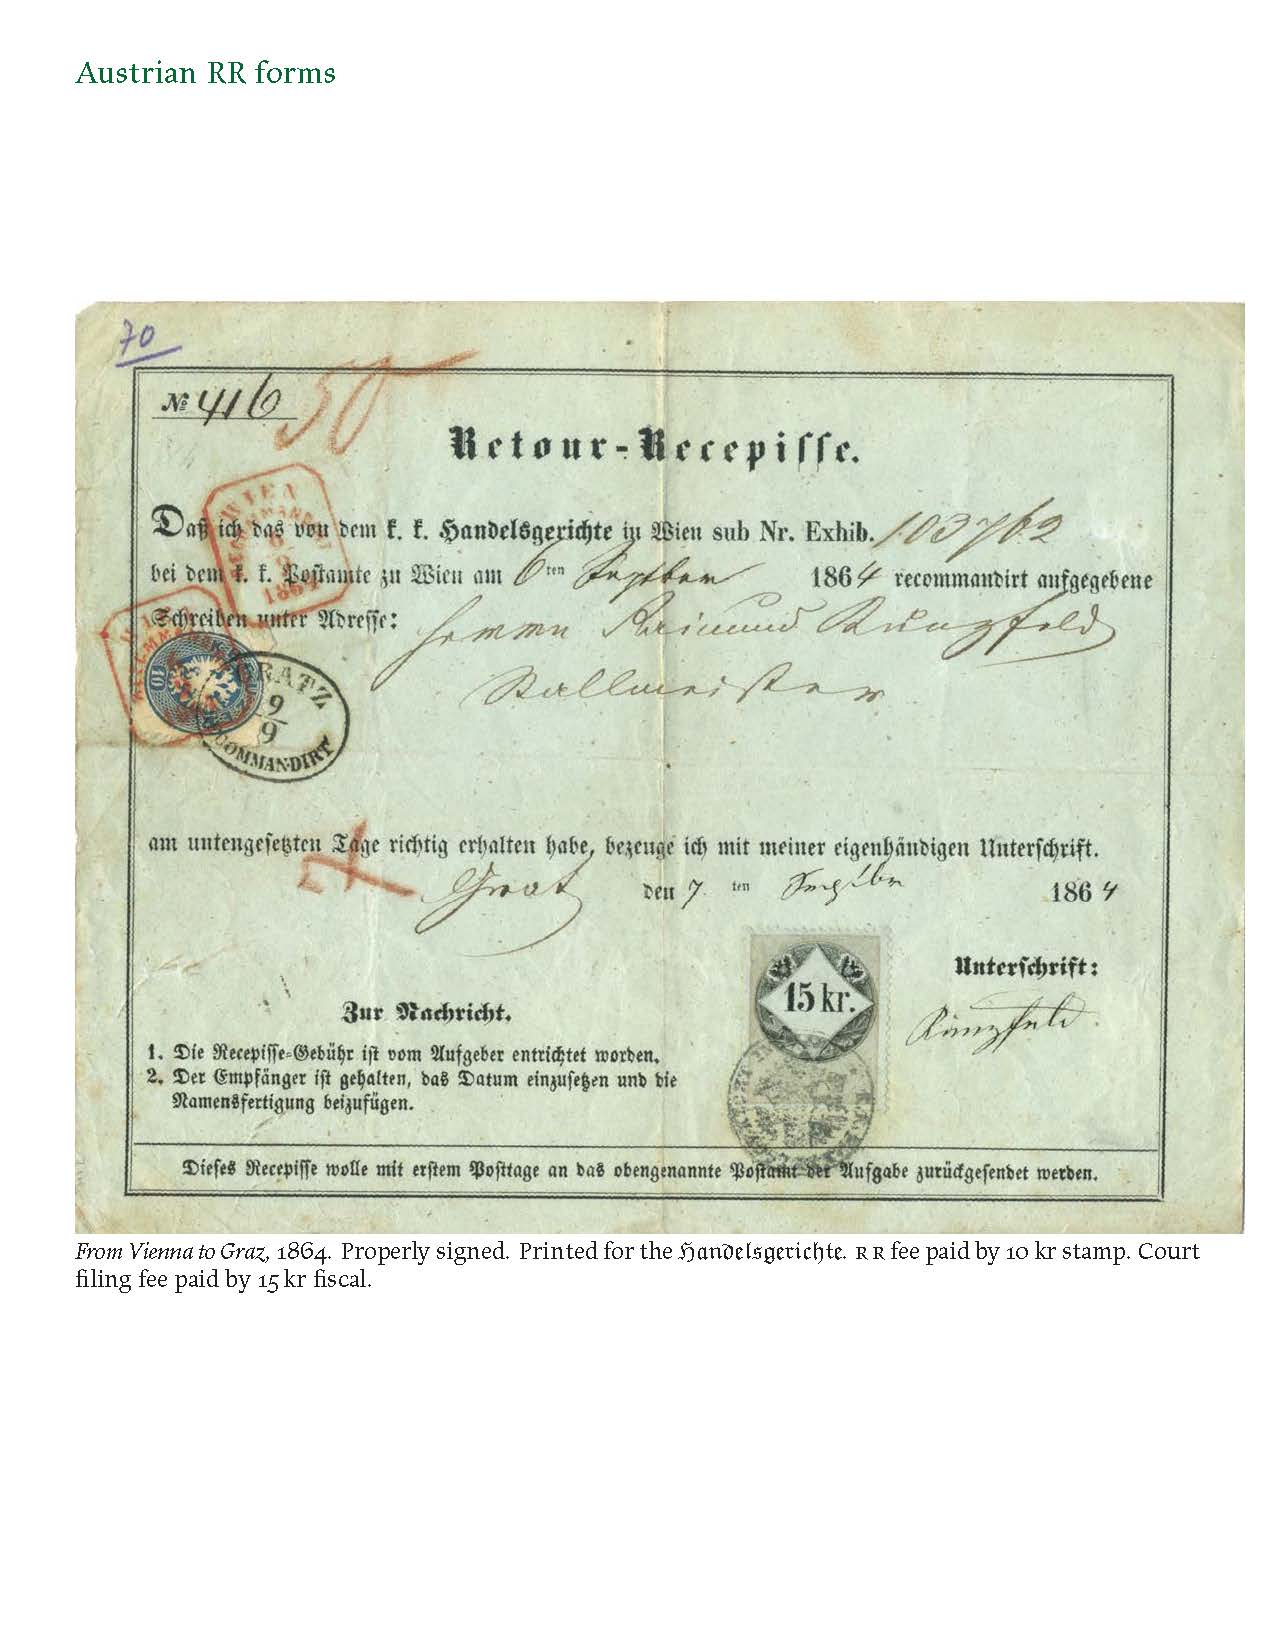 Austrian RR forms
70
№ 416 50
Retour-Recepisse.
Daß ich das von dem k. k. Handelsgerichte in Wien sub Nr. Exhib. 103762
bei dem k. k. Postamte zu Wien am 6ten September 1864 recommandirt aufgegebene
Schreiben unter Adresse: Herrn Raimund Künzfeld
Stallmeister
WIEN
1864
10
GRATZ
9
9
COMMANDIRT
am untengesetzten Tage richtig erhalten habe, bezeuge ich mit meiner eigenhändigen Unterschrift.
Gratz den 7. ten Septbr 1864
15 kr.
Unterschrift:
Künzfeld
Zur Nachricht.
1. Die Recepisse-Gebühr ist vom Aufgeber entrichtet worden.
2. Der Empfänger ist gehalten, das Datum einzusetzen und die
Namensfertigung beizufügen.
Dieses Recepisse wolle mit erstem Posttage an das obengenannte Postamt der Aufgabe zurückgesendet werden.
From Vienna to Graz, 1864. Properly signed. Printed for the Handelsgerichte. RR fee paid by 10 kr stamp. Court
filing fee paid by 15 kr fiscal.